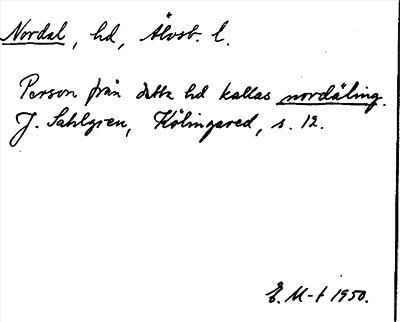 Nordal, hd, Älvsb. l.
Person från detta hd kallas nordäling.
J. Sahlgren, Kölingared, s. 12.
E. M-t 1950.